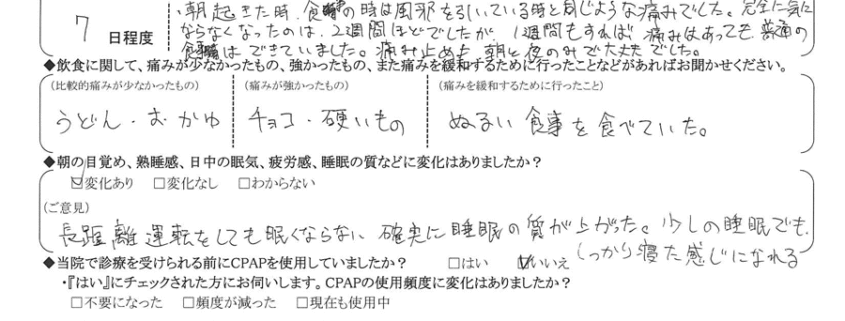 ・朝起きた時、食事の時は風邪を引いている時と同じような痛みでした。完全に気に
7 日程度
ならなくなったのは、2週間ほどでしたが、1週間もすれば痛みはあっても、普通の
食事はできていました。痛み止めも、朝と夜のみで大丈夫でした。
◆飲食に関して、痛みが少なかったもの、強かったもの、また痛みを緩和するために行ったことなどがあればお聞かせください。
(比較的痛みが少なかったもの) (痛みが強かったもの) (痛みを緩和するために行ったこと)
うどん・おかゆ チョコ・硬いもの ぬるい食事を食べていた。
◆朝の目覚め、熟睡感、日中の眠気、疲労感、睡眠の質などに変化はありましたか？
☑変化あり □変化なし □わからない
(ご意見)
長距離運転をしても眠くならない 確実に睡眠の質が上がった。少しの睡眠でも、
しっかり寝た感じになれる
◆当院で診療を受けられる前にCPAPを使用していましたか？ □はい ☑いいえ
・『はい』にチェックされた方にお伺いします。CPAPの使用頻度に変化はありましたか？
□不要になった □頻度が減った □現在も使用中